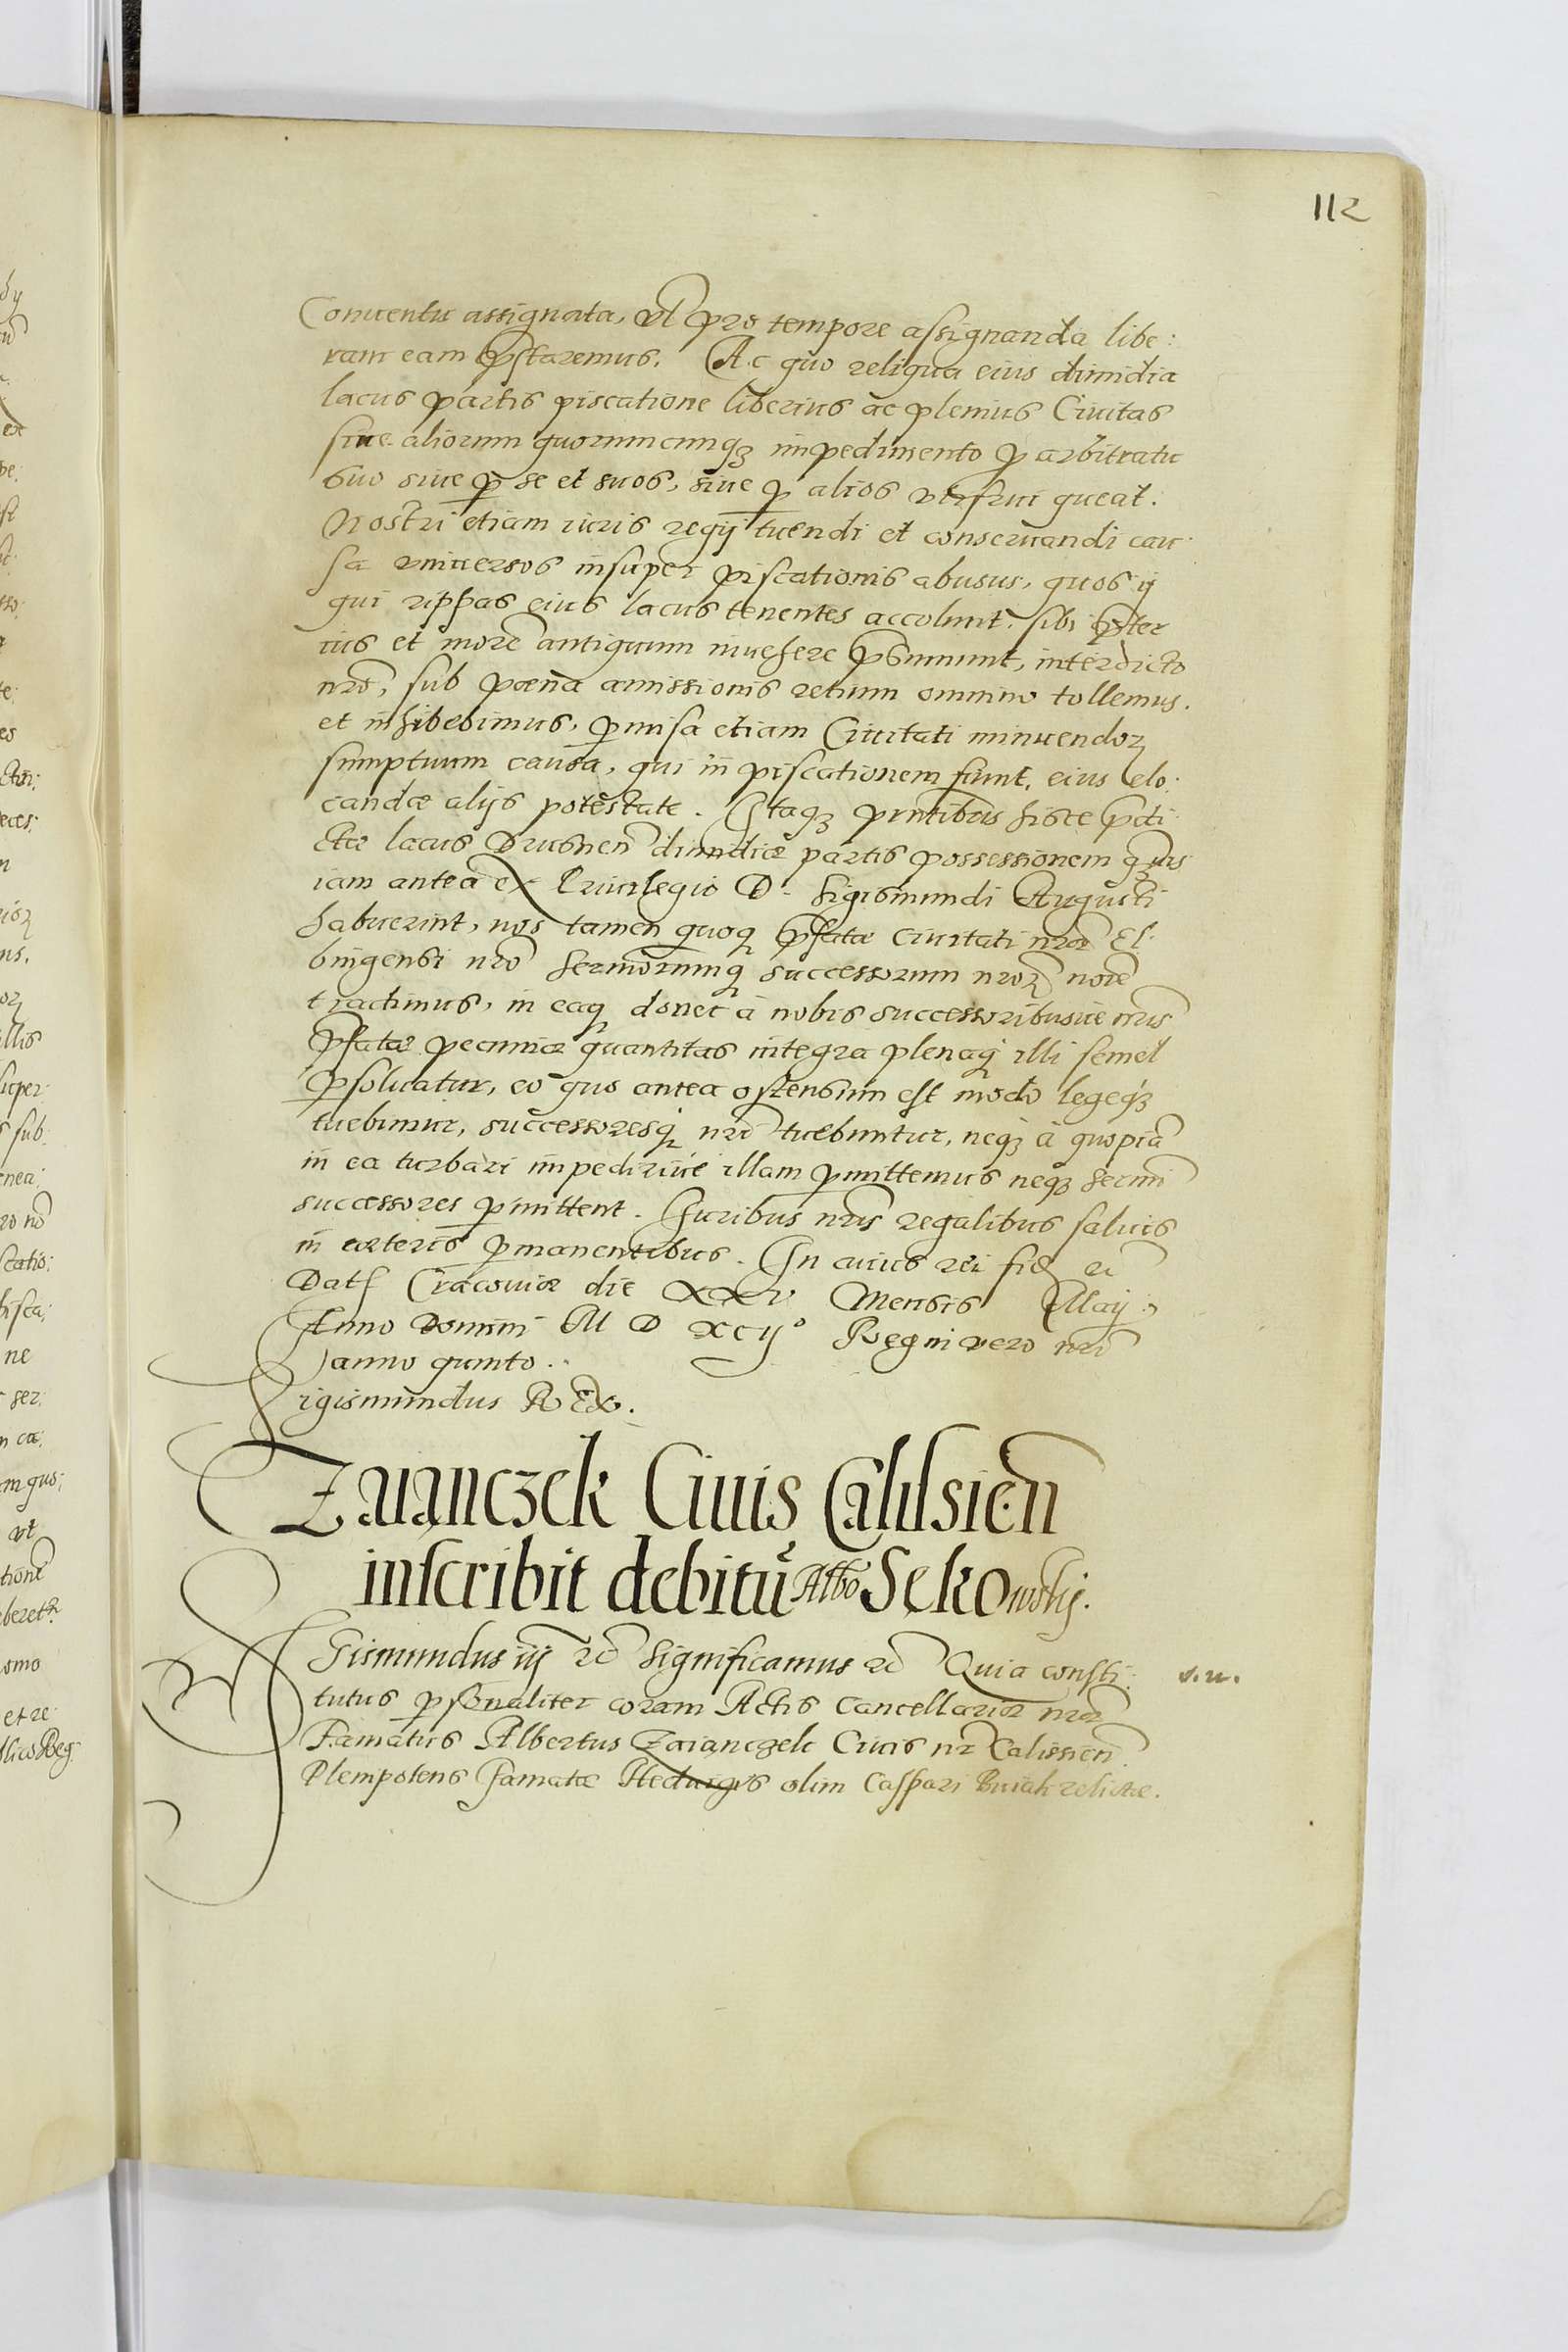 112
Conuentu assignata, vl pro tempore assignanda libe:
ram eam pstaremus. Ac quo reliqua eius dimidia
lacus partis piscatione liberius ac plenius Ciuitas
sine aliorum quorumcunqz impedimento p arbitratu
suo siue p se et suos, siue p alios vtifrui queat.
Nostri etiam iuris regij tuendi et conseruandi cau
sa vniuersos insuper piscationis abusus, quos ij
qui rippas eius lacus tenentes accolunt, sibi pter
ius et more antiquum inuehere psumunt, interdicto
nro, sub poena amissionis retium omnino tollemus.
et inhibebimus, pmisa etiam Ciuitati minuendoz
sumptuum causa, qui in piscationem fiunt, eius elo:
candæ alijs potestate. Itaqz pntibus hisce pdi
ctæ lacus Drusnen dimidiæ partis possessionem quis
iam antea ex Priuilegio D. Sigismundi Augusti
habuerint, nos tamen quoq pfatæ ciuitati nræ El:
bingensi nro sermorumq successorum nroz noie
tradimus, in eaq donec à nobis successoribusue nris
pfatæ pecuniæ quantitas integra plenaq illi semel
psoluatur, eo quo antea ostensum est modo legeqz
tuebimur, successoresq nri tuebuntur, neqz à quopia
in ea turbari impediriue illam pmittemus neqz sermi
successores pmittent. Iuribus nris regalibus saluis
in cæteris pmanentibus. In cuius rei fid &
Dat Cracouiæ die XXV Mensis Maij
Anno Domini M D xcij° Regni vero nri
anno quinto.
Sigismundus Rex.
Zaiączek Ciuis Calisien
inscribit debitu Albo Sękowskij.
Sigismundus iij &c Significamus &c Quia consti: v. u.
tutus psonaliter coram Actis Cancellariæ nræ
Famatus Albertus Zaiączek Ciuis nr Calissien
Plenipotens Famatæ Heduigis olim Caspari relictæ.